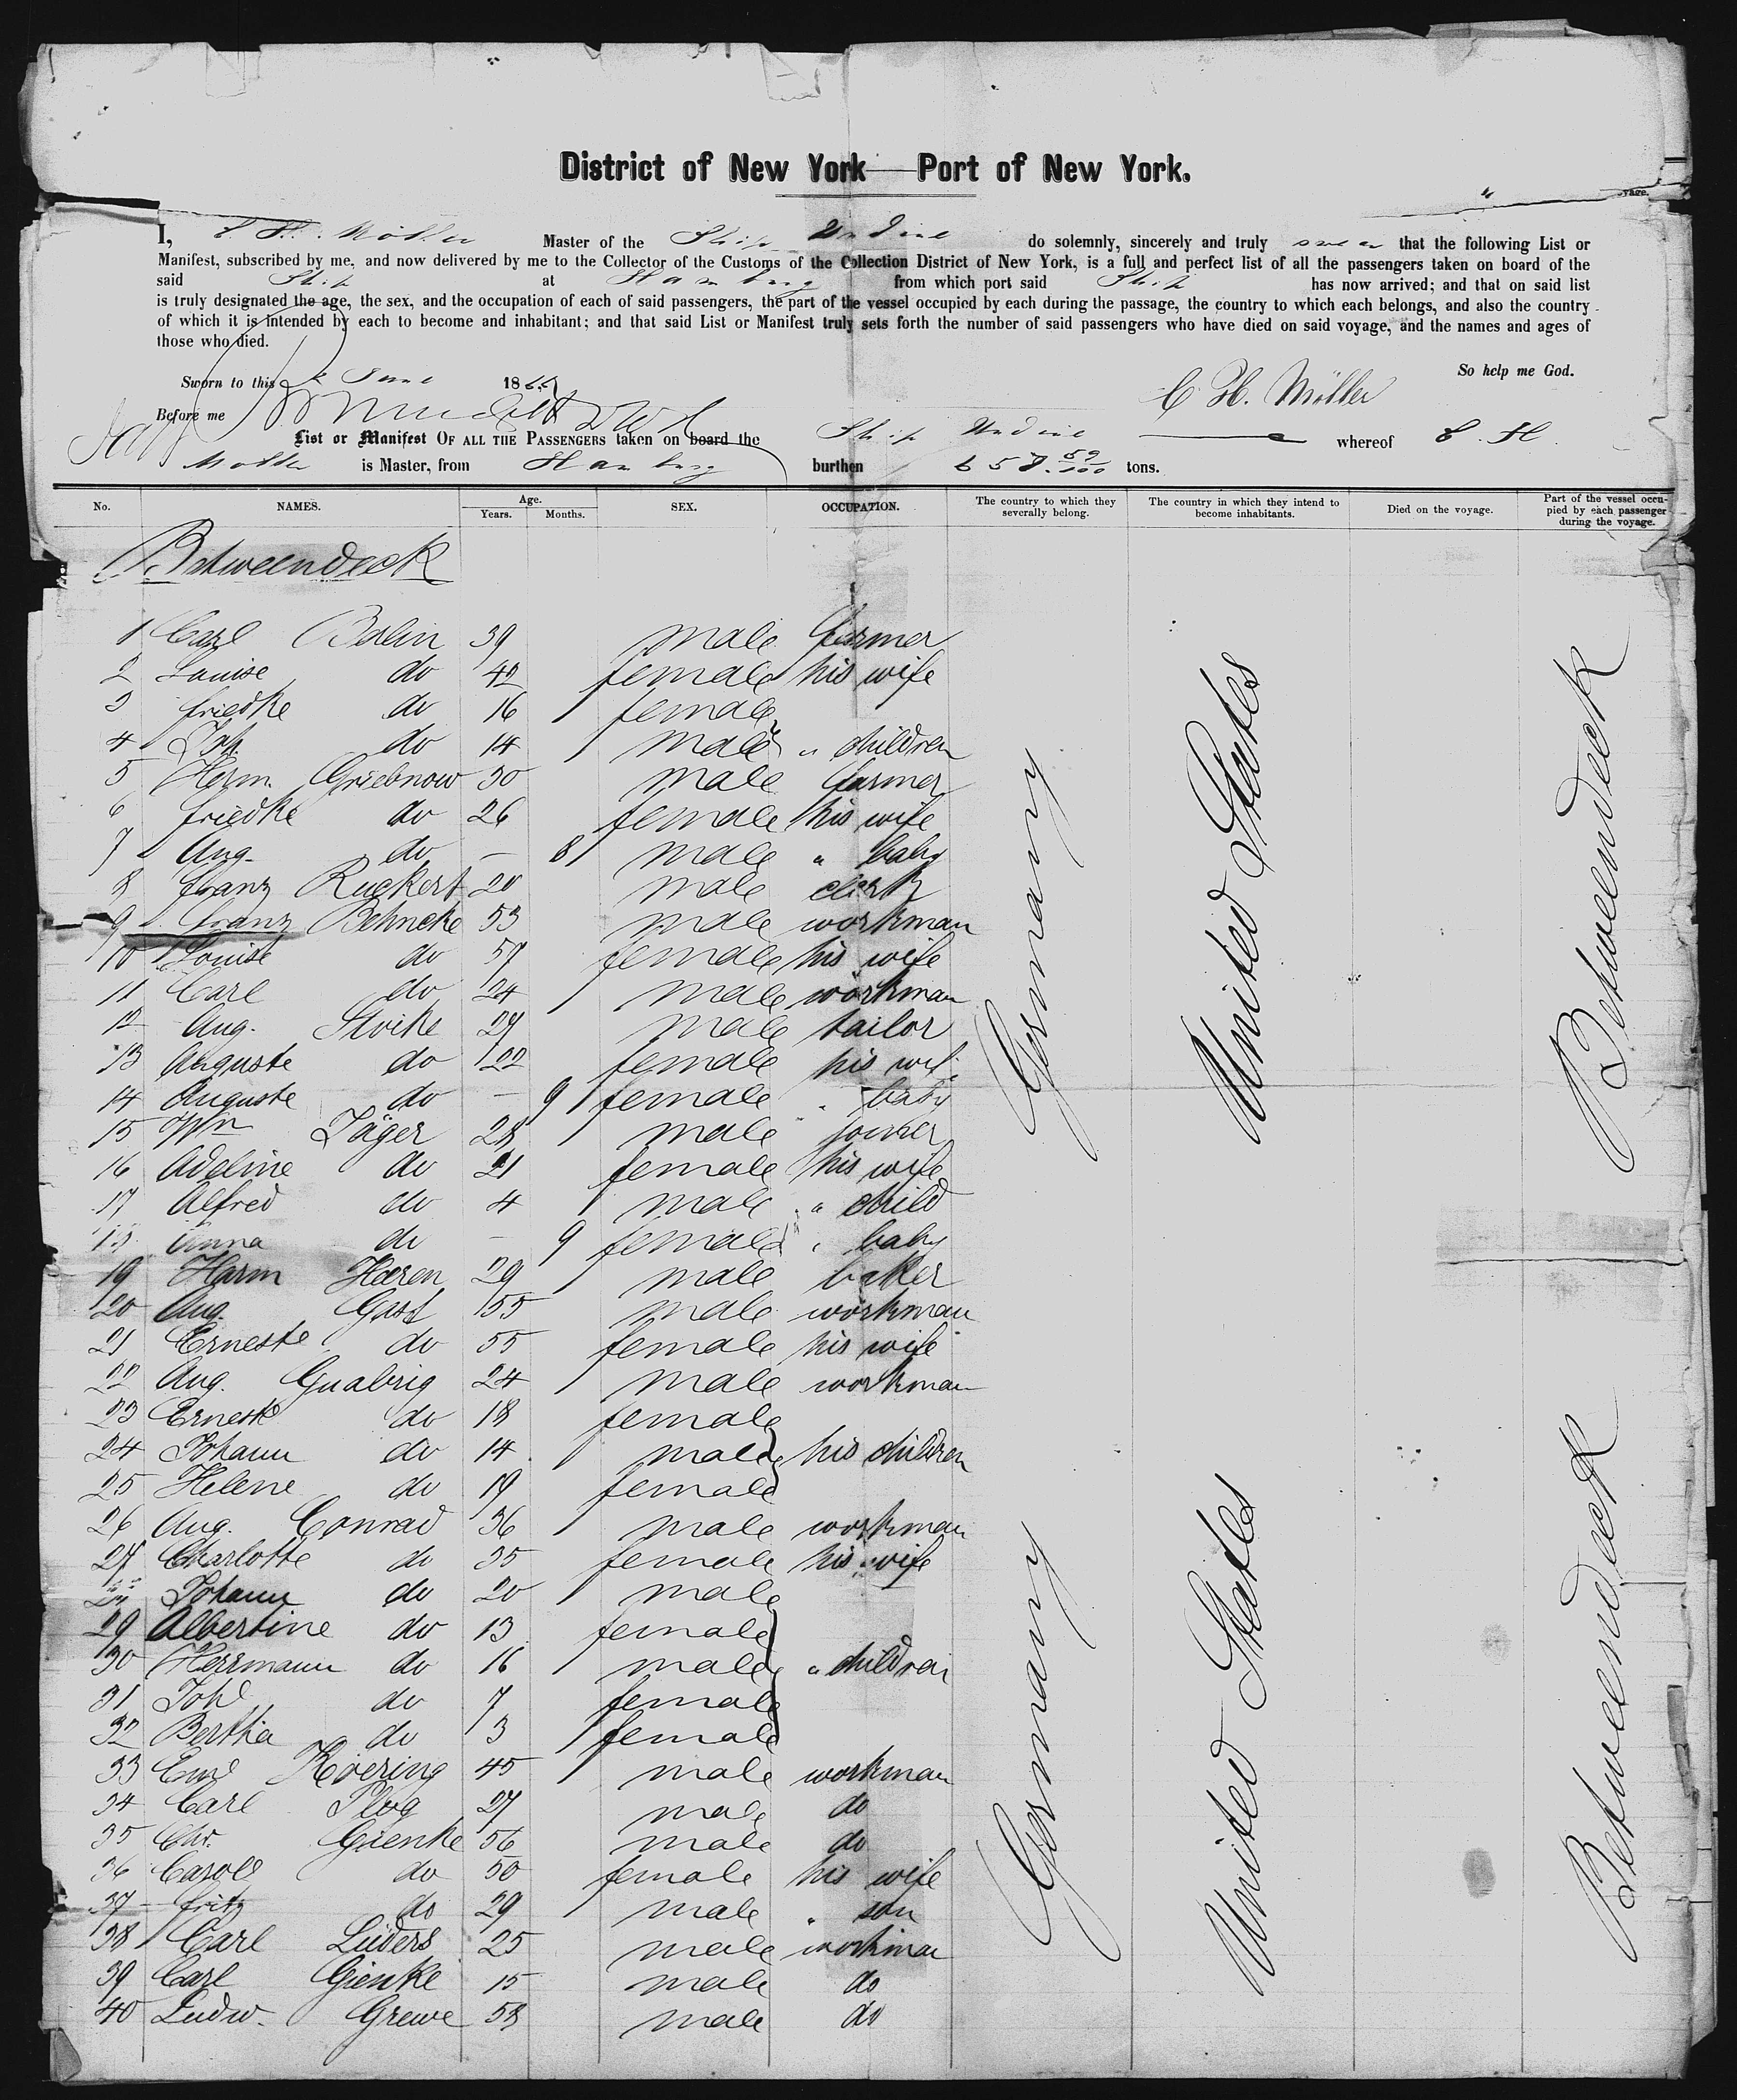 District of New York—Port of New York.
yage.
I, C. H. Möller Master of the Ship Undine do solemnly, sincerely and truly swear that the following List or
Manifest, subscribed by me, and now delivered by me to the Collector of the Customs of the Collection District of New York, is a full and perfect list of all the passengers taken on board of the
said Ship at Hamburg from which port said Ship has now arrived; and that on said list
is truly designated the age, the sex, and the occupation of each of said passengers, the part of the vessel occupied by each during the passage, the country to which each belongs, and also the country
of which it is intended by each to become and inhabitant; and that said List or Manifest truly sets forth the number of said passengers who have died on said voyage, and the names and ages of
those who died.
So help me God.
Sworn to this June 1866
C. H. Möller
Before me
List or Manifest OF ALL THE PASSENGERS taken on board the Ship Undine whereof C. H.
Möller is Master, from Hamburg burthen 658. 59/100 tons.
No. NAMES. Age. Years. Months. SEX. OCCUPATION. The country to which they severally belong. The country in which they intend to become inhabitants. Died on the voyage. Part of the vessel occupied by each passenger during the voyage.
Betweendeck
1 Carl Berlin 39 male farmer
2 Louise do 42 female his wife
3 friedke do 16 female
4 Joh. do 14 male " children
5 Herm. Griebnow 30 male farmer
6 friedke do 26 female his wife
7 Aug. do — 8 male " baby
8 franz Ruckert 20 male clerk
9 franz Behncke 53 male workman
10 Louise do 57 female his wife
11 Carl do 24 male workman
12 Aug. Stoike 27 male tailor
13 Auguste do 22 female his wife
14 Auguste do — 9 female " baby
15 Wm Jäger 28 male joiner
16 Adeline do 21 female his wife
17 Alfred do 4 male " child
18 Anna do — 9 female " baby
19 Harm Haren 29 male baker
20 Aug. Gast 55 male workman
21 Erneste do 55 female his wife
22 Aug. Gualrig 24 male workman
23 Ernest do 18 female
24 Johann do 14 male his children
25 Helene do 19 female
26 Aug. Conrad 36 male workman
27 Charlotte do 35 female his wife
28 Johann do 20 male
29 Albertine do 13 female
30 Herrmann do 16 male " children
31 Joh do 7 female
32 Bertha do 3 female
33 Koering 45 male workman
34 Carl Plog 27 male do
35 Chr. Gienke 56 male do
36 Carol do 50 female his wife
37 fritz do 29 male " son
38 Carl Lüders 25 male workman
39 Carl Gienke 15 male do
40 Ludw. Grewe 58 male do
Germany
United States
Betweendeck
Germany
United States
Betweendeck